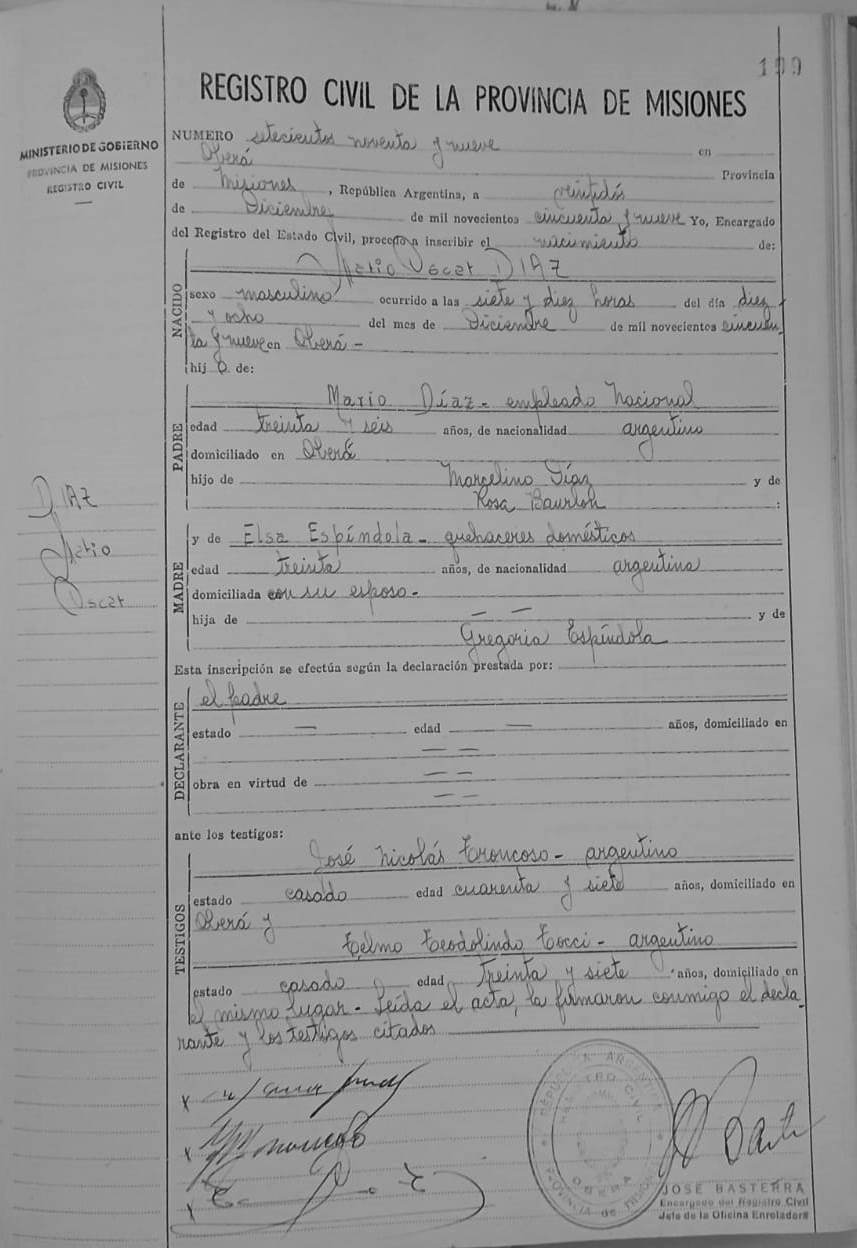 199
REGISTRO CIVIL DE LA PROVINCIA DE MISIONES
MINISTERIO DE GOBIERNO
PROVINCIA DE MISIONES
REGISTRO CIVIL
NUMERO setecientos noventa y nueve en
Oberá Provincia
de Misiones, República Argentina, a veintidós
de Diciembre de mil novecientos cincuenta y nueve Yo, Encargado
del Registro del Estado Civil, procedo a inscribir el nacimiento de:
Oscar DIAZ
NACIDO
sexo masculino ocurrido a las siete y diez horas del día diez
y ocho del mes de Diciembre de mil novecientos cincuen
ta y nueve en Oberá -
hijo de:
PADRE
Mario Díaz - empleado Nacional
edad treinta y séis años, de nacionalidad argentino
domiciliado en Oberá
hijo de Marcelino Díaz y de
Rosa :
MADRE
y de Elsa Espíndola - quehaceres domésticos
edad treinta años, de nacionalidad argentina
domiciliada con su esposo -
hija de — — y de
Gregoria Espíndola
DIAZ
Oscar
Esta inscripción se efectúa según la declaración prestada por:
DECLARANTE
el padre
estado — edad — años, domiciliado en
— —
obra en virtud de — —
— —
ante los testigos:
TESTIGOS
José Nicolás Troncoso - argentino
estado casado edad cuarenta y siete años, domiciliado en
Oberá y
Telmo Teodolindo Tocci - argentino
estado casado edad treinta y siete años, domiciliado en
el mismo lugar - Leída el acta, la firmaron conmigo el decla
rante y los testigos citados
REPUBLICA ARGENTINA
REGISTRO CIVIL
OBERA
PROVINCIA de MISIONES
JOSE BASTERRA
Encargado del Registro Civil
Jefe de la Oficina Enroladora